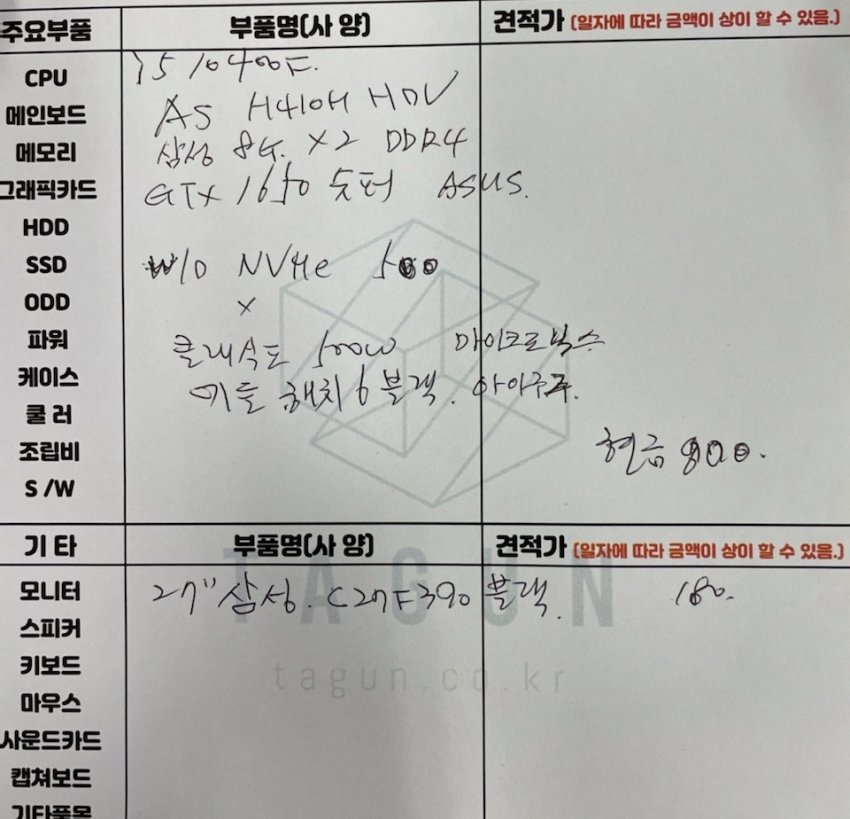 주요부품 부품명(사 양) 견적가 (일자에 따라 금액이 상이 할 수 있음.)
CPU i5 10400F.
메인보드 AS H410M HDV
메모리 삼성 8G. X2 DDR4
그래픽카드 GTX 1650 슷터 ASUS.
HDD
SSD W/D NVMe 500
ODD X
파워 클래식도 500W 마이크로닉스
케이스 해치6 블랙.
쿨 러
조립비 현금 800.
S/W
기 타 부품명(사 양) 견적가 (일자에 따라 금액이 상이 할 수 있음.)
모니터 27" 삼성. C27F390 블랙. 180.
스피커
키보드
마우스
사운드카드
캡쳐보드
기타품목
TAGUN
tagun.co.kr